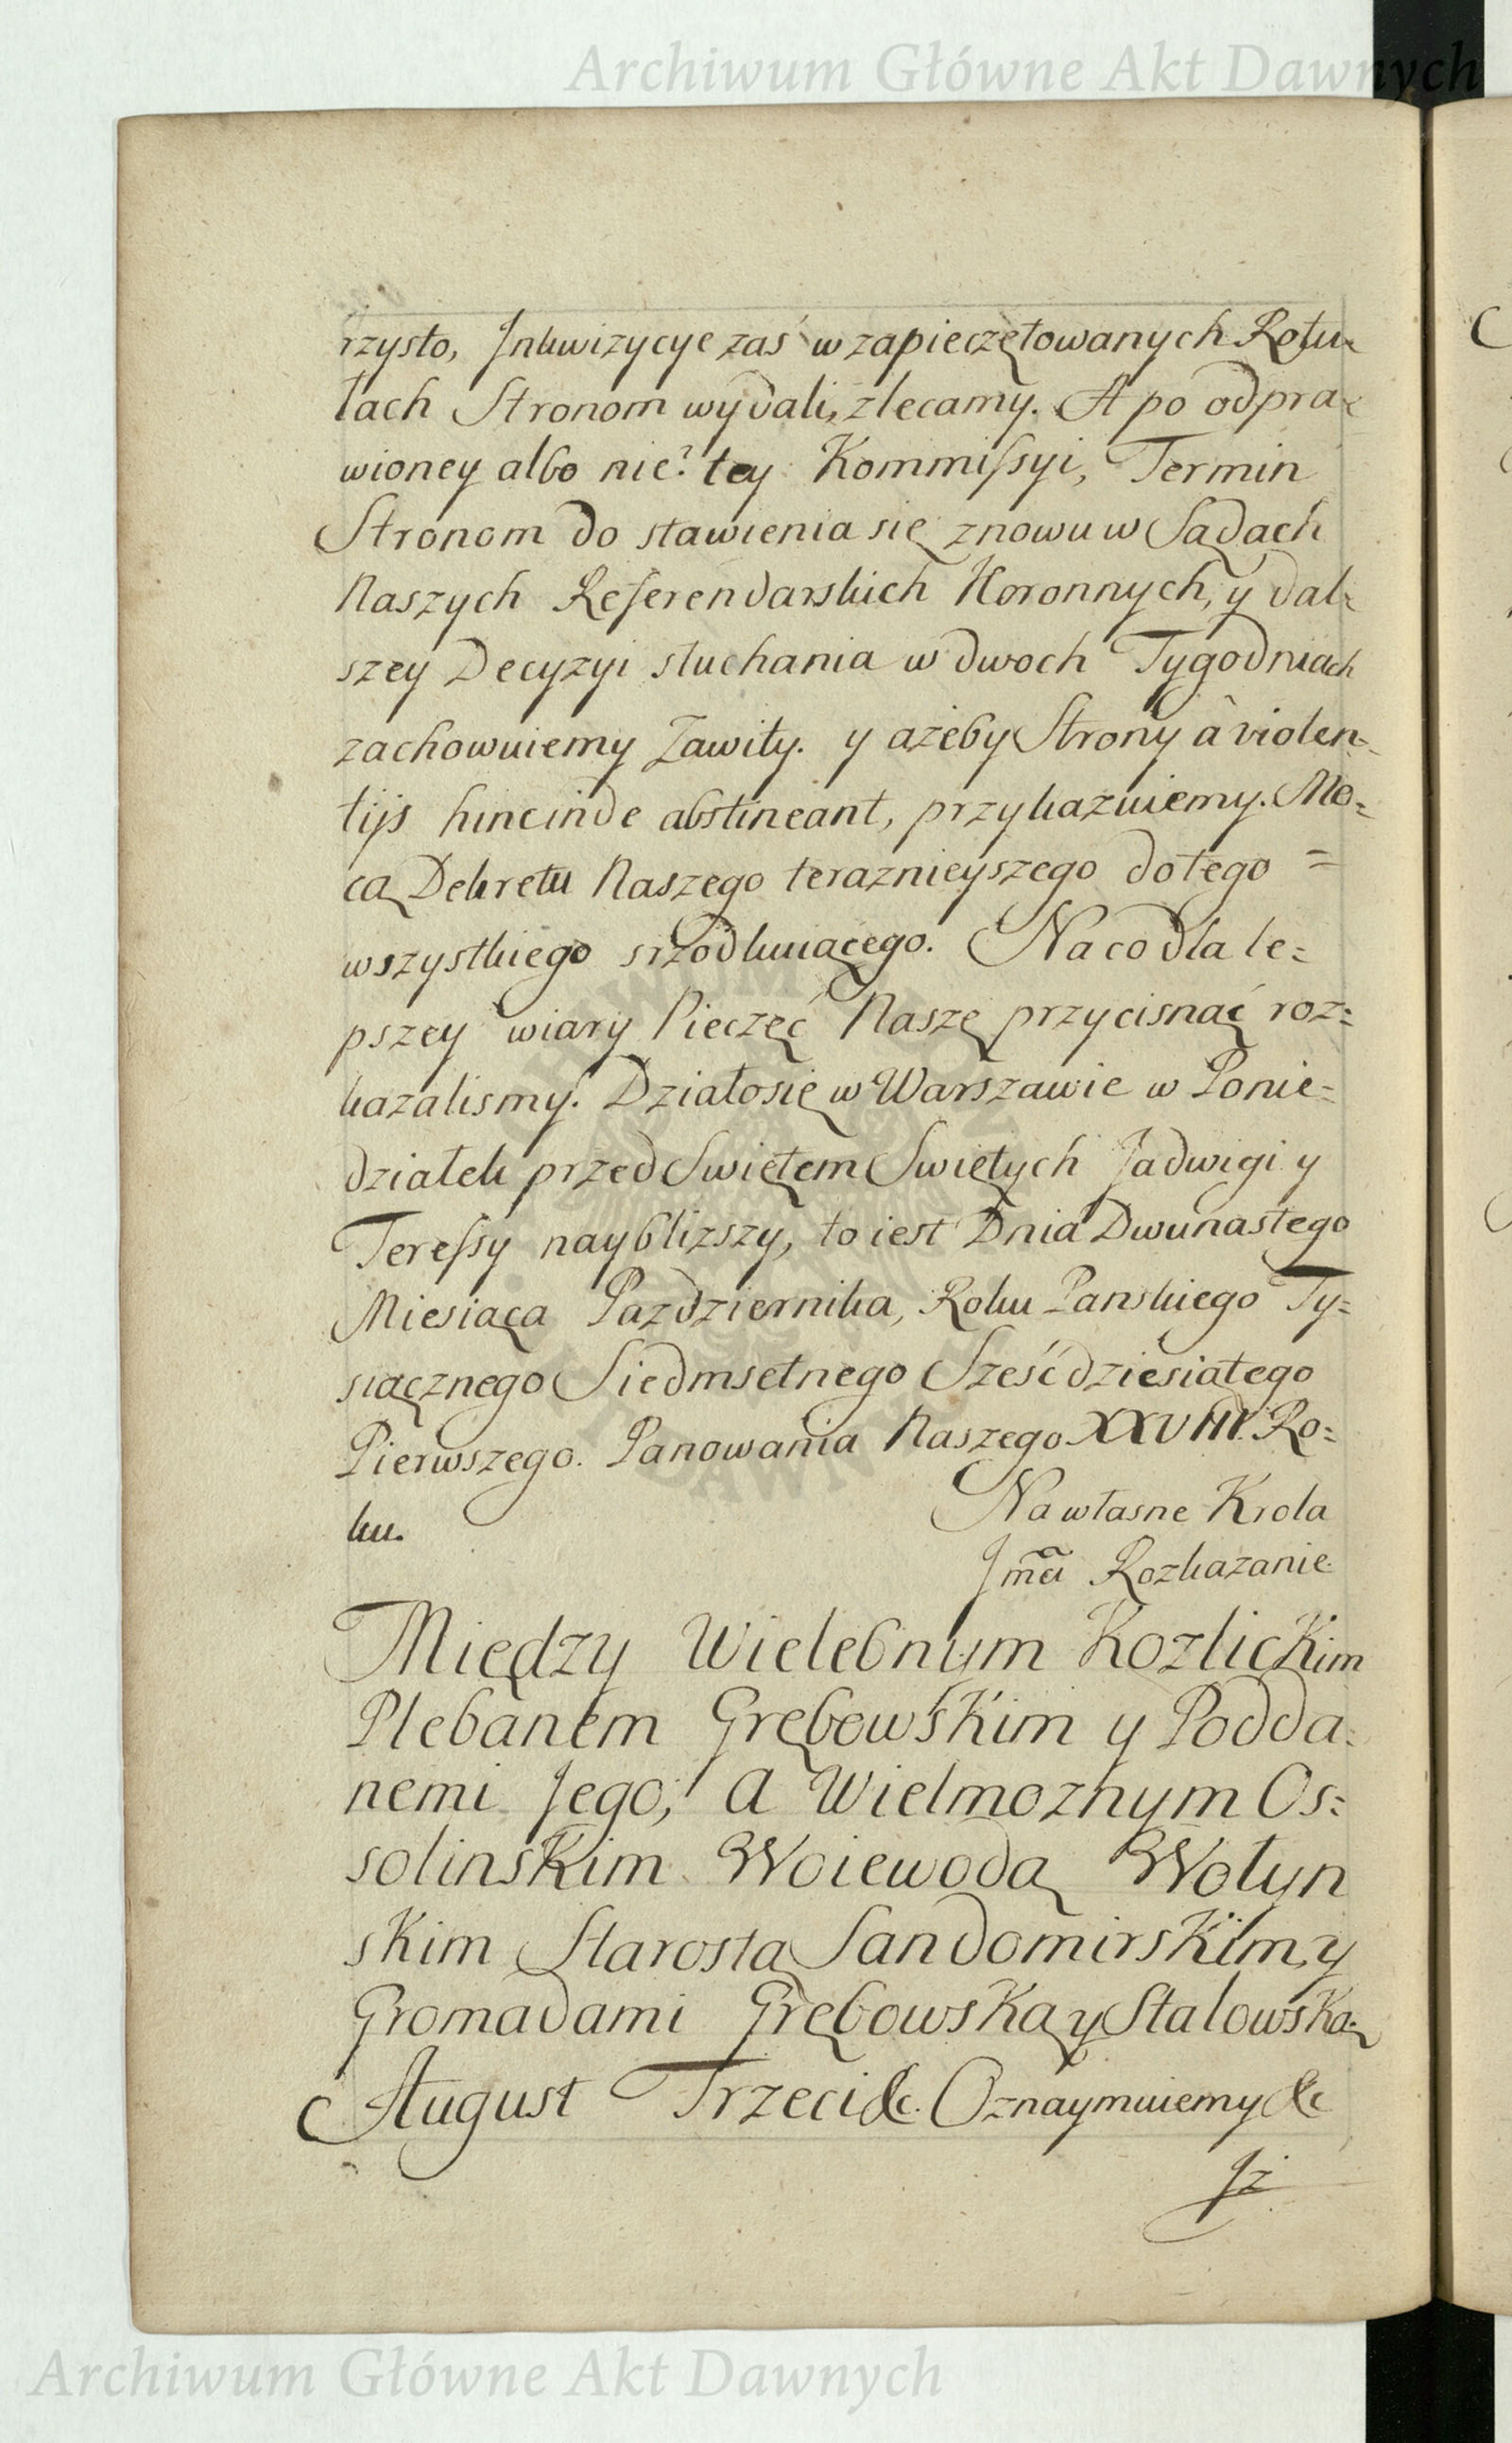 Archiwum Główne Akt Dawnych
rzysto, Jnkwizycye zaś w zapieczętowanych Rotu=
łach Stronom wydali, zlecamy. A po odpra=
wioney albo nie? tey Kommissyi, Termin
Stronom do stawienia się znowu w Sądach
Naszych Referendarskich Koronnych, y dal=
szey Decyzyi słuchania w dwoch Tygodniach
zachowuiemy Zawity. y ażeby Strony à violen=
tijs hincinde abstineant, przykazuiemy. Mo=
cą Dekretu Naszego teraznieyszego do tego =
wszystkiego srzodkuiącego. Na co dla le=
pszey wiary Pieczęć Naszę przycisnąć roz=
kazalismy. Działo się w Warszawie w Ponie=
działek przed Swiętem Swiętych Jadwigi y
Teressy naybliższy, to iest Dnia Dwunastego
Miesiąca Pazdziernika, Roku Panskiego Ty=
siącznego Siedmsetnego Sześćdziesiątego
Pierwszego. Panowania Naszego XXVIII. Ro=
ku.
Na własne Krola
Jmći Rozkazanie
Między Wielebnym Kozlickim
Plebanem Grębowskim y Podda=
nemi Jego, A Wielmoznym Os=
solinskim Woiewodą Wołyn
skim Starostą Sandomirskim, y
Gromadami Grębowską y Stalowską.
August Trzeci &c. Oznaymuiemy &c
Jż
Archiwum Główne Akt Dawnych